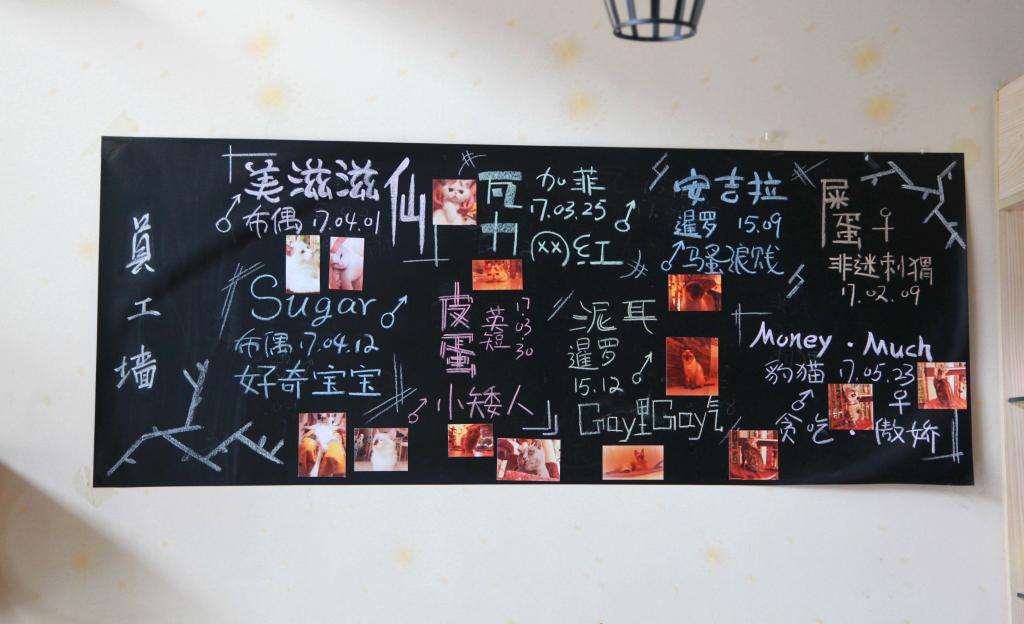 員工墙
美滋滋
♂布偶 17.04.01
仙
Sugar ♂
布偶 17.04.12
好奇宝宝
瓦力
加菲
17.03.25 ♂
红
皮蛋
英短
17.03.30
♂小矮人
安吉拉
暹罗 15.09
♂马蚤浪贱
泥耳
暹罗
15.12 ♂
Gay里Gay气
屎蛋♀
非迷刺猬
17.02.09
Money · Much
豹猫 17.05.23
♂ ♀
贪吃 · 傲娇